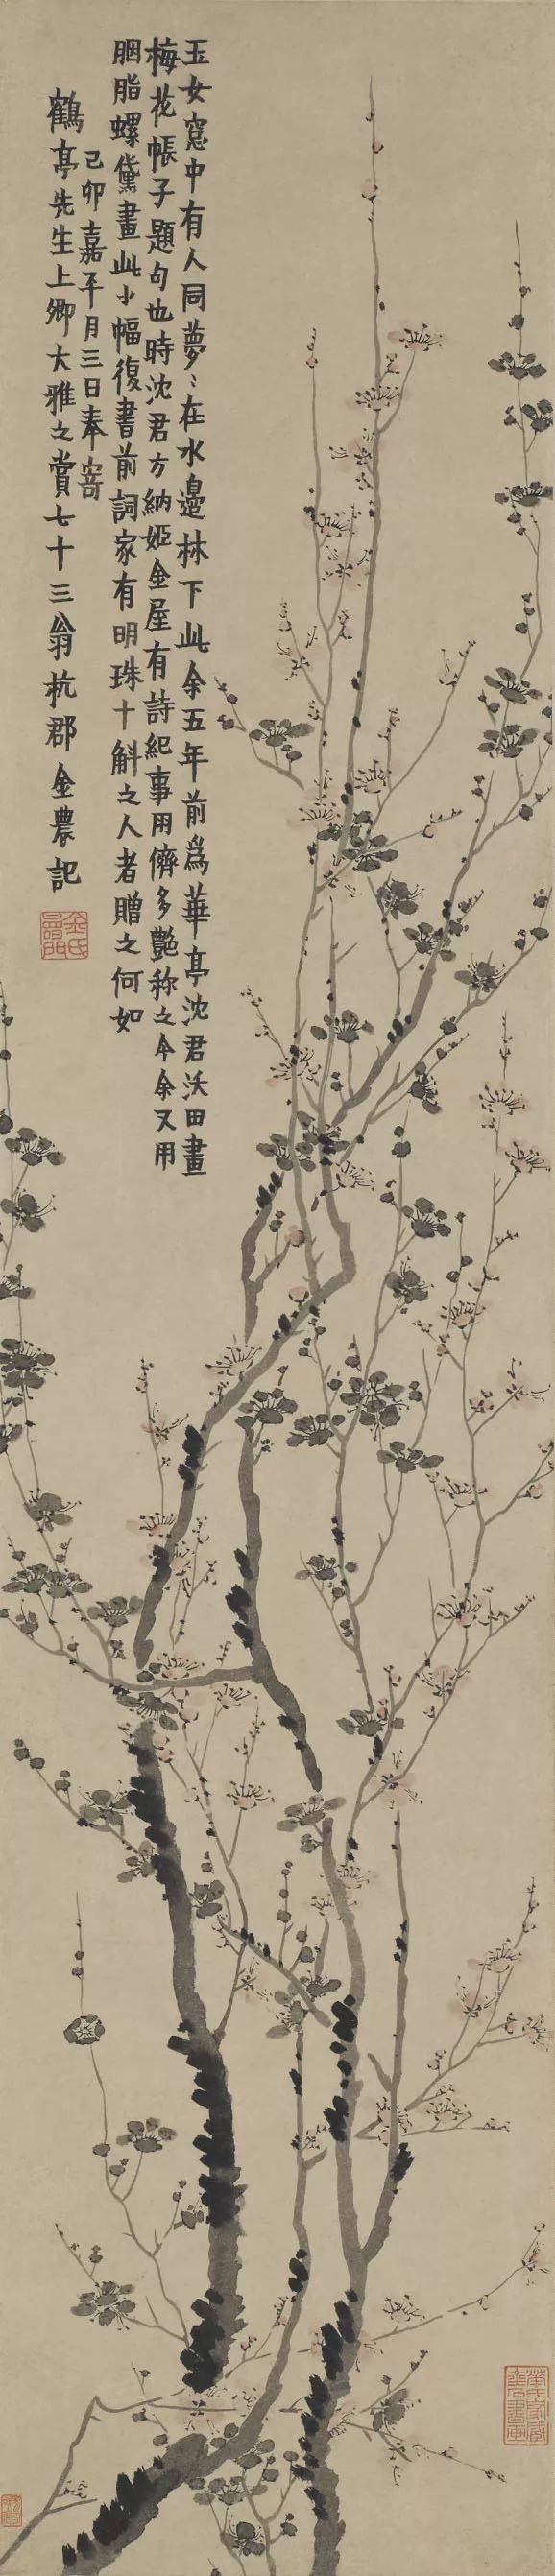 玉女窓中有人同夢〻在水邉林下此余五年前爲華亭沈君沃田畫
梅花帳子題句也時沈君方納姬金屋有詩紀事用儕多艶称之今余又用
胭脂螺黛畫此小幅復書前詞家有明珠十斛之人者贈之何如
己卯嘉平月三日奉寄
鶴亭先生上卿大雅之賞七十三翁杭郡金農記
金氏
壽門